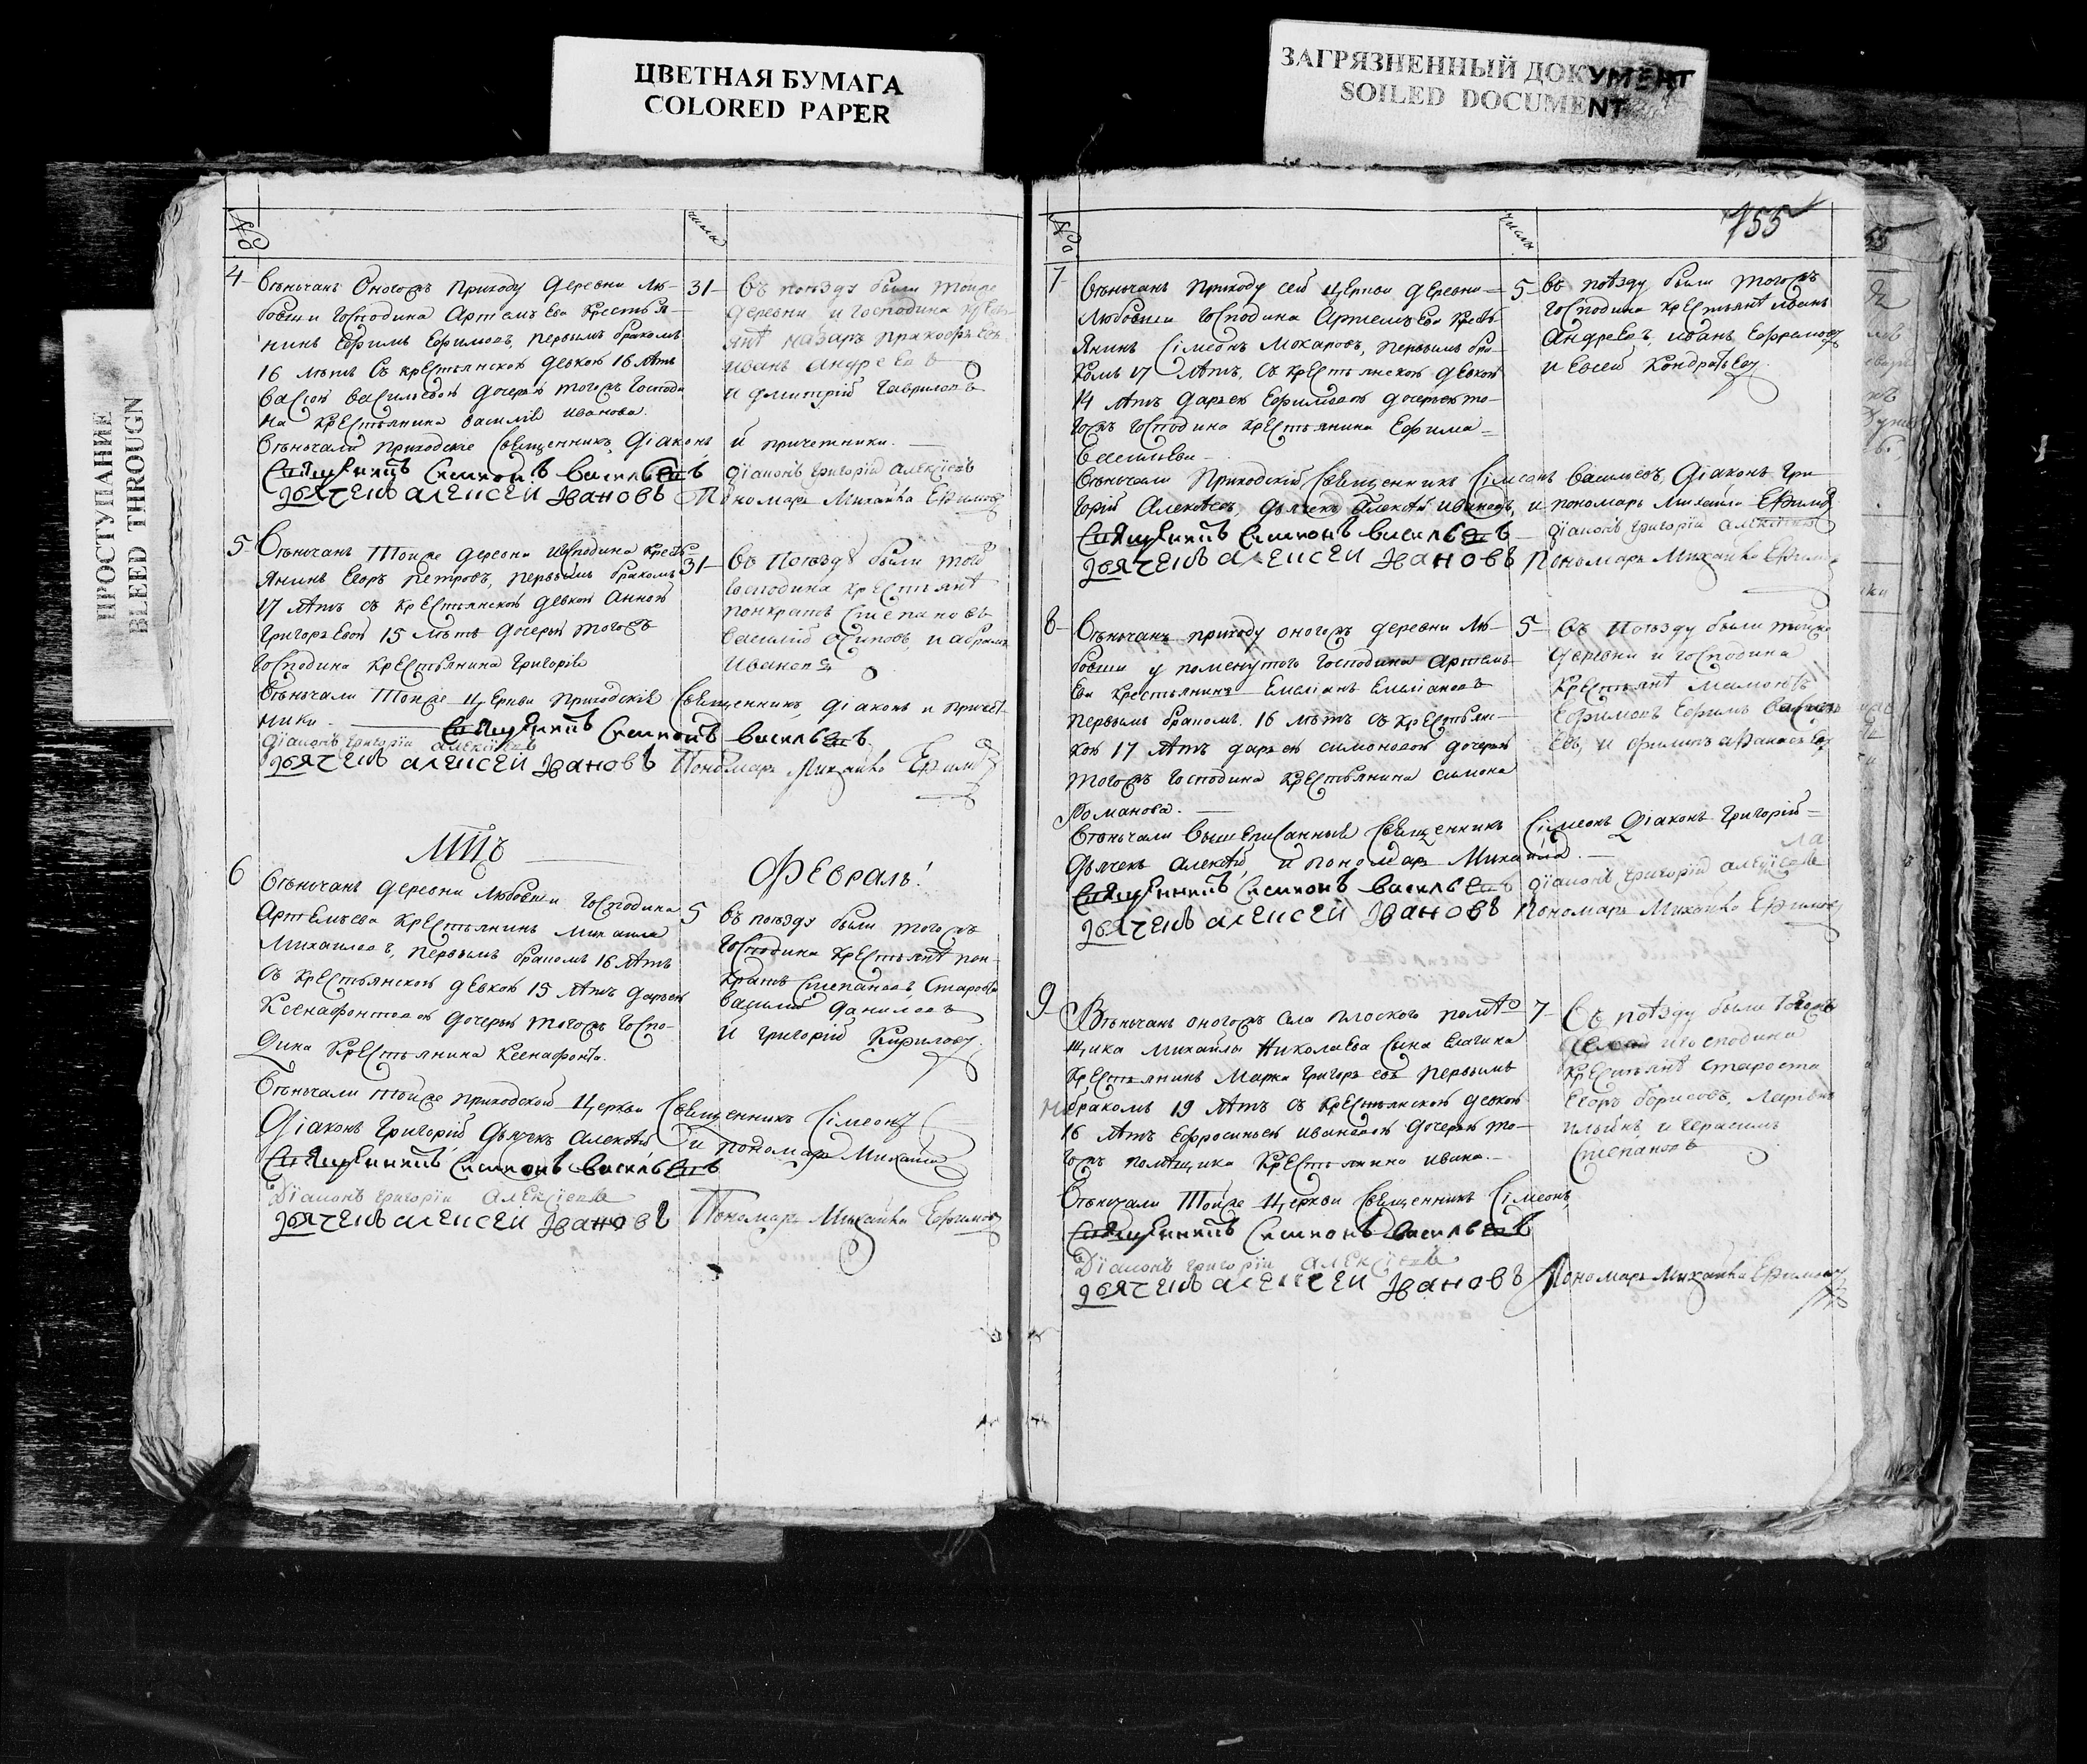 ЦВЕТНАЯ БУМАГА
COLORED PAPER
ЗАГРЯЗНЕННЫЙ ДОКУМЕНТ
SOILED DOCUMENT
ПРОСТУПАНИЕ
BLEED THROUGN
№
числа
4
Вѣнчанъ Оногожъ приходу деревни Лю-
бовши Господина Артемъева крестья-
нинъ Ефимъ Ефимовъ, первымъ бракомъ
16 лѣтъ съ крестьянской девкой 16 лѣтъ
васильевой дочерью тогожъ Господи
на крестьянина василія иванова.
Вѣнчали приходскіе священникъ, діаконъ и причетники.
31
Въ поѣзду были тоиже
деревни и господина
назаръ пракофьевъ
иванъ андреевъ
и дмитрій гавриловъ
Священникъ Симионъ Васильевъ
діаконъ григорій алексіевъ
дьячекъ алексеи ивановъ
Пономарь Михайла Ефимовъ
5
Вѣнчанъ Тоиже деревни Господина кресть
янинъ Егоръ петровъ, первымъ бракомъ
17 лѣтъ съ крестьянской девкой анной
григорьевой 15 лѣтъ дочерью тогожъ
Господина крестьянина григорія
31
Въ поѣзду были того
господина крестьянѣ
понкратъ степановъ
василій осиповъ, и абрамъ
ивановъ
Вѣнчали Тоиже церкви приходскіе священникъ, діаконъ и причет
ники.
Священникъ Симионъ Васильевъ
діаконъ григорій алексіевъ
дьячекъ алексеи ивановъ
Пономарь Михайла Ефимовъ
Февраль.
6
Вѣнчанъ деревни Любовши господина
Артемъева крестьянинъ михаила
михаиловъ, первымъ бракомъ 16 лѣтъ
съ крестьянской девкой 15 лѣтъ дарьей
Ксенафонтовой дочерью тогожъ госпо-
дина крестьянина ксенафонта.
5
въ поѣзду были тогожъ
господина крестьянѣ пон-
кратъ степановъ, староста
василій даниловъ
и григорій Кириловъ.
Вѣнчали тоиже приходской церкви священникъ Сімеонъ
діаконъ григорій, дьячекъ алексѣй и пономарь михаила
Священникъ Симионъ Васильевъ
Діаконъ григорій алексіевъ
дьячекъ алексеи ивановъ
Пономарь Михайла Ефимовъ
155
№
числа
7
Вѣнчанъ приходу сей церкви деревни
Любовши господина Артемъева кресть
янинъ Сімеонъ Макаровъ, первымъ бра-
комъ 17 лѣтъ, съ крестьянской девкой
14 лѣтъ дарьей Ефимовой дочерью то-
гожъ господина крестьянина Ефима
васильева
5
въ поѣзду были тогожъ
господина крестьянѣ иванъ
андреевъ, иванъ Ефремовъ
и Евсей Кондратьевъ.
Вѣнчали приходскій священникъ Сімеонъ васильевъ, діаконъ гри-
горій алексѣевъ, дьячекъ алексѣй ивановъ, и пономарь михайла Ефимовъ
Священникъ Симионъ Васильевъ
діаконъ григорій алексіевъ
дьячекъ алексеи ивановъ
Пономарь Михайла Ефимовъ
8
Вѣнчанъ приходу оногожъ деревни Лю-
бовши у помянутого господина артемь
ева крестьянинъ Емеліанъ Емеліановъ
первымъ бракомъ 16 лѣтъ съ крестьянс-
кой 17 лѣтъ дарьей симоновой дочерью
тогожъ господина крестьянина симона
Романова.
5
въ поѣзду были тоиже
деревни и господина
крестьянѣ мамонтъ
Ефимовъ Ефимъ василь
евъ, и филипъ афанасьевъ
Вѣнчали вышеписанныя священникъ Сімеонъ діаконъ григорій
дьячекъ алексѣй, и пономарь михайла.
Священникъ Симионъ Васильевъ
діаконъ григорій алексіевъ
дьячекъ алексеи ивановъ
Пономарь Михайла Ефимовъ
9
Вѣнчанъ оногожъ села плоского помѣ
щика михайлы николаева сына Елагина
крестьянинъ марка григорьевъ первымъ
бракомъ 19 лѣтъ съ крестьянской девкой
16 лѣтъ Ефросиньей ивановой дочерью то-
гожъ помѣщика крестьянина ивана.
7
Въ поѣзду были
и господина
крестьянѣ староста
Егоръ борисовъ,
ильинъ и герасимъ
степановъ
Вѣнчали Тоиже церкви священникъ Сімеонъ,
Священникъ Симионъ Васильевъ
Діаконъ григорій алексіевъ
дьячекъ алексеи ивановъ
Пономарь Михайла Ефимовъ